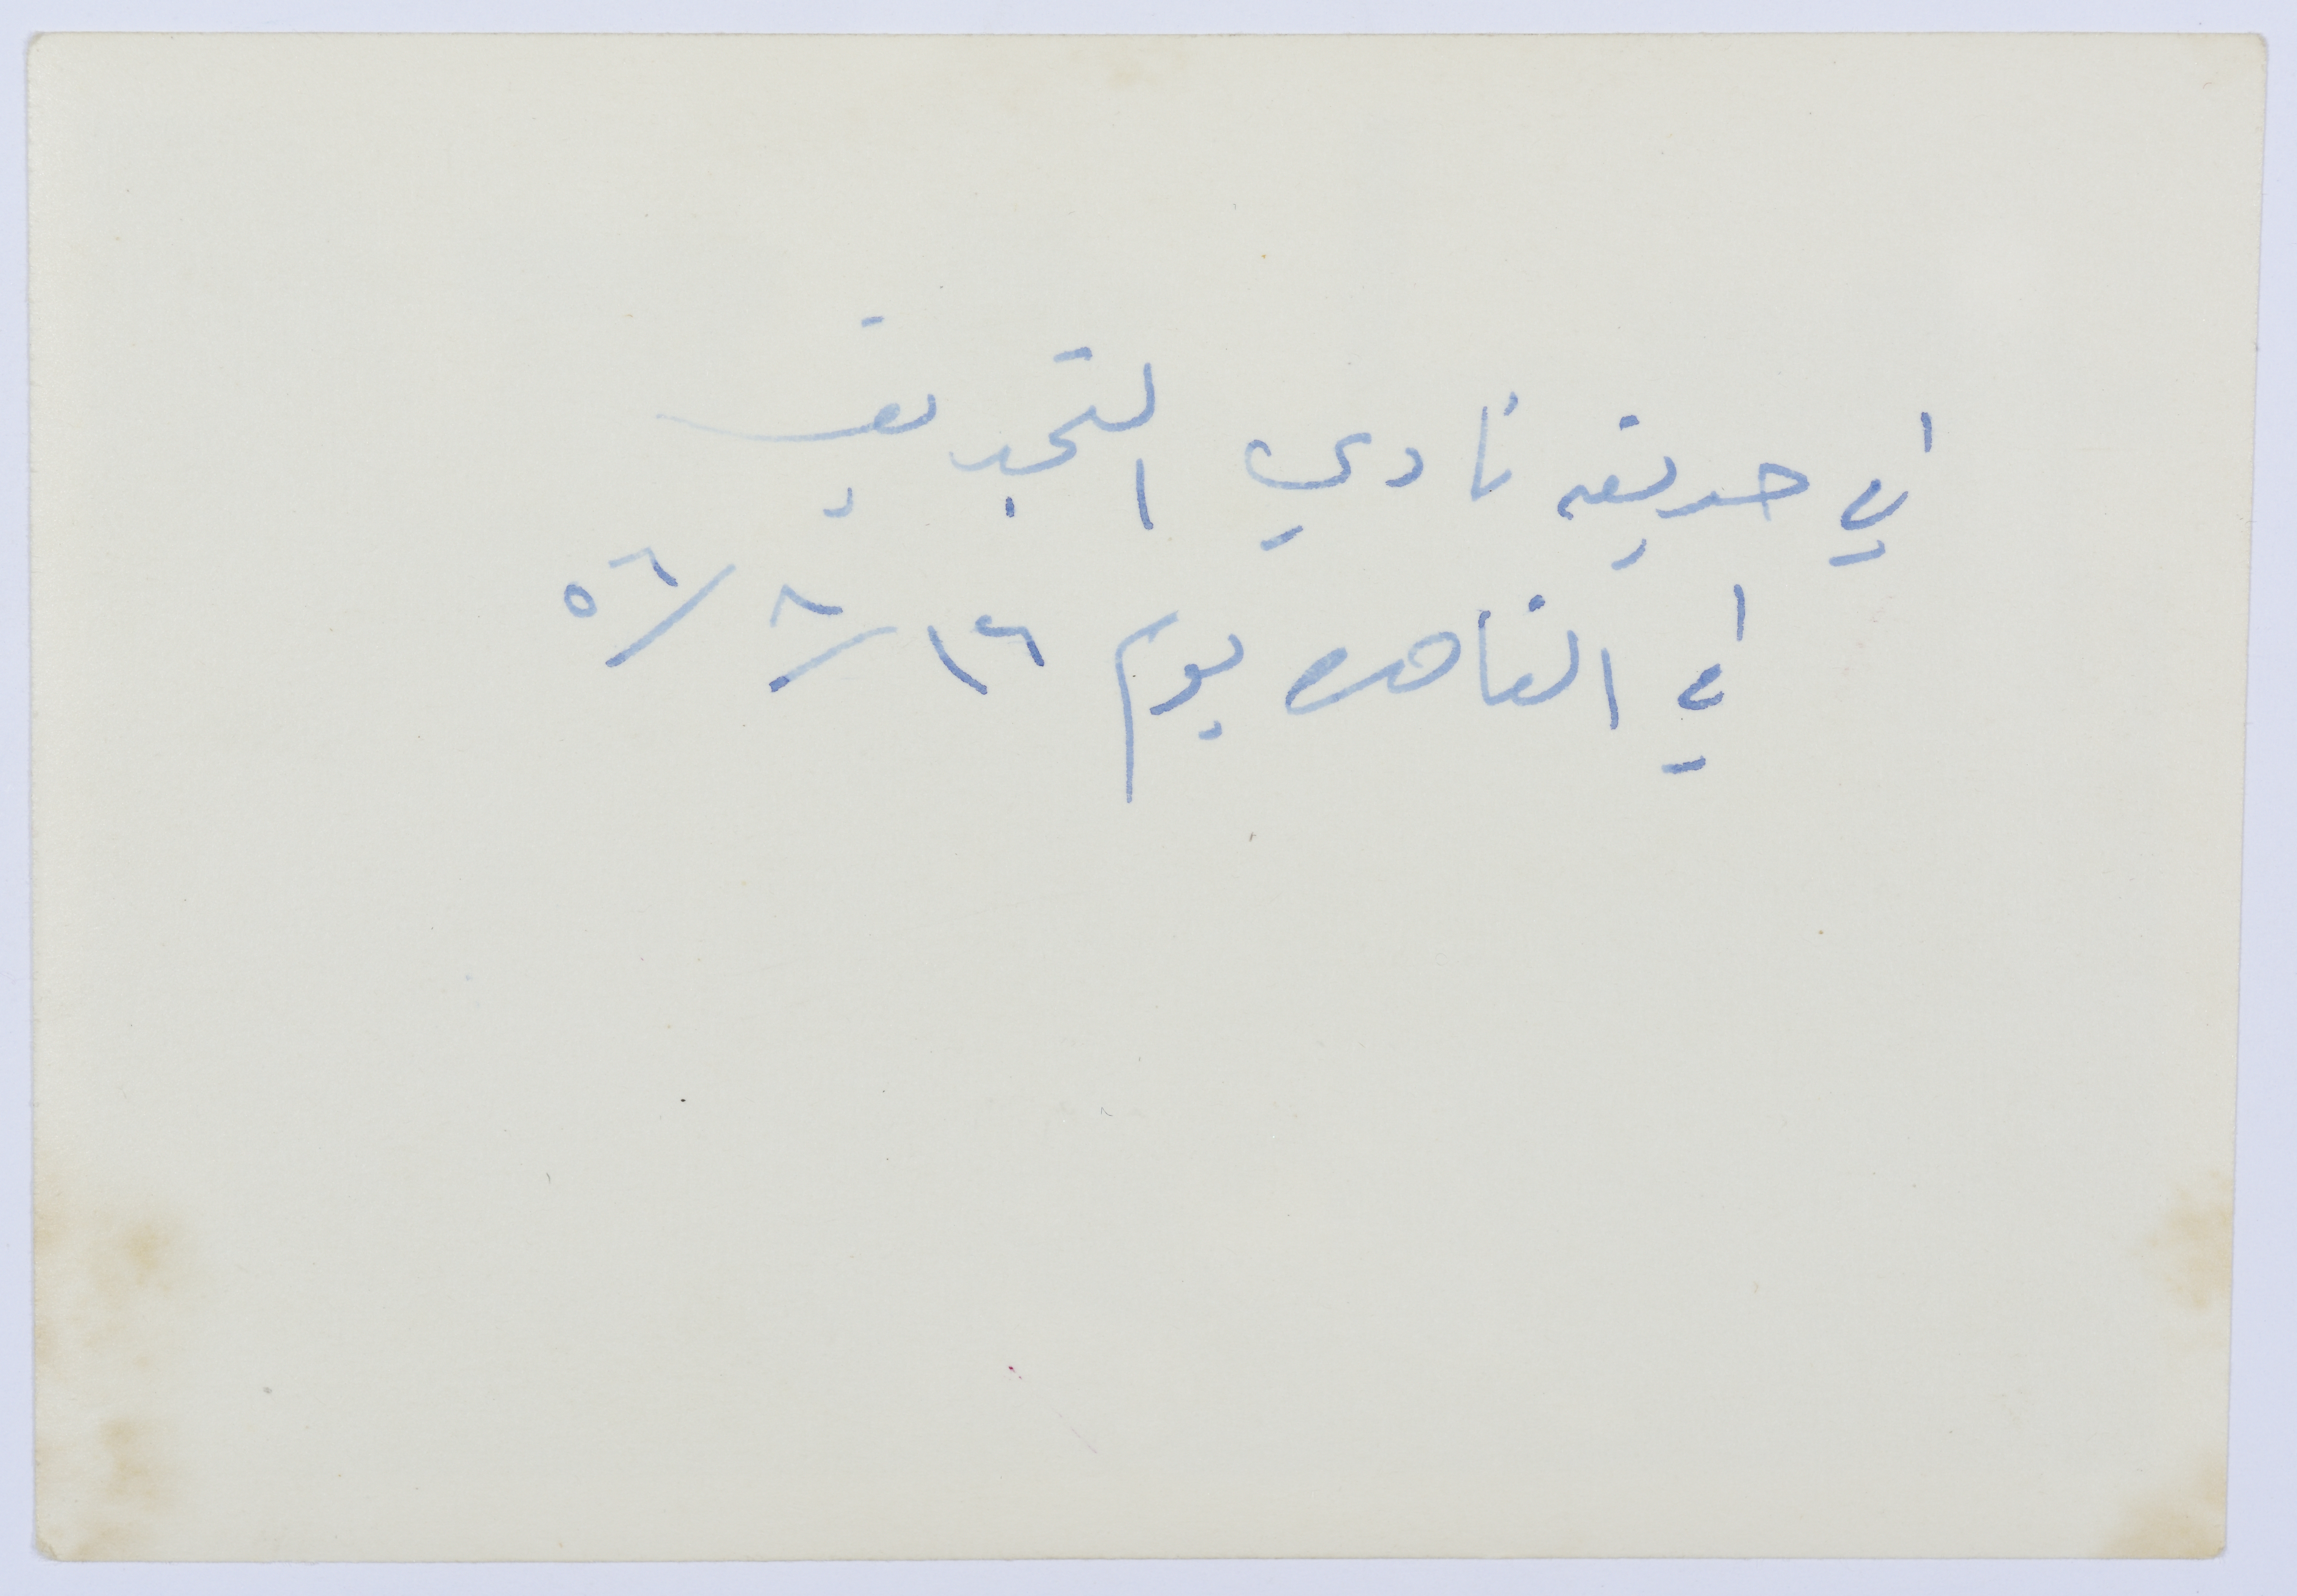 في حديقه نادي التجديف
في القاهره يوم ١٦/٨/٥٦